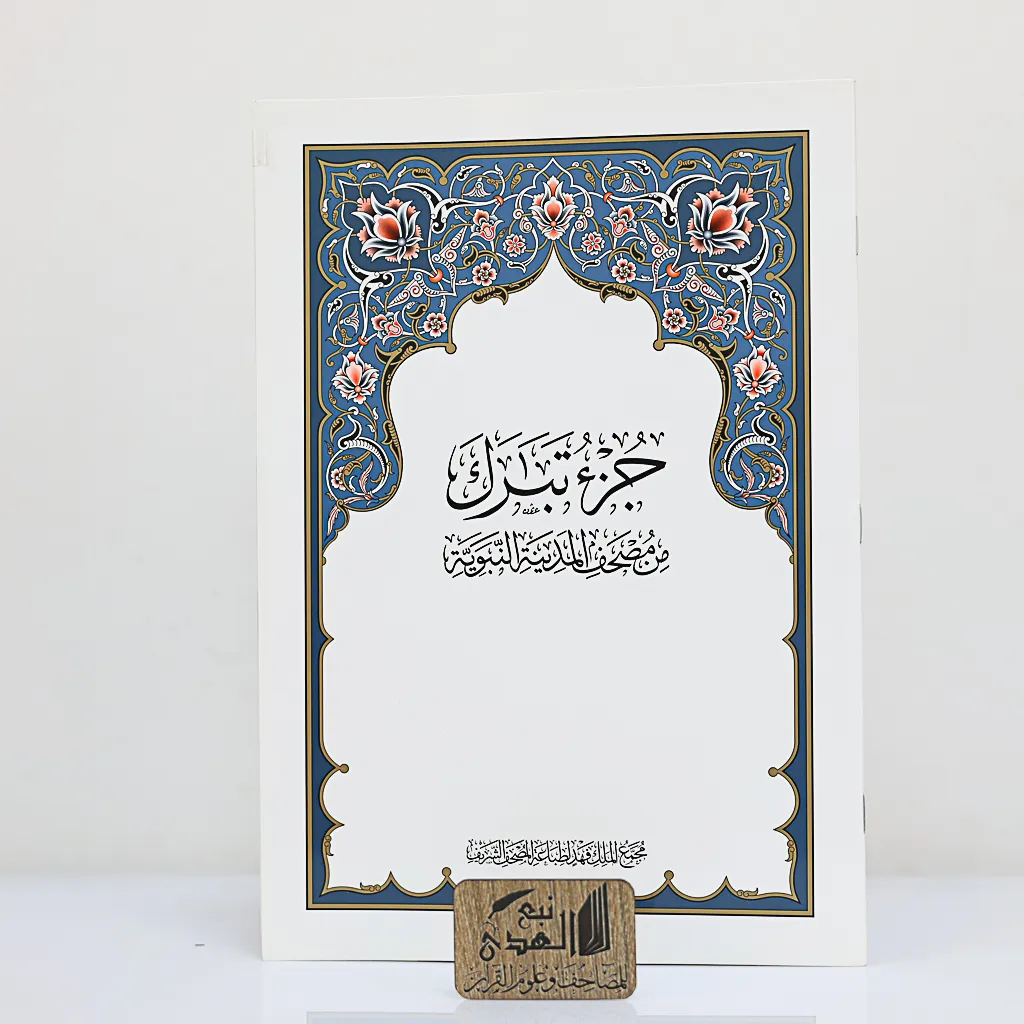 جُزْءُ تَبَٰرَكَ
مِنْ مُصْحَفِ الْمَدِينَةِ النَّبَوِيَّةِ
مُجَمَّع الملك فهد لطباعة المصحف الشريف
نبع
الهدى
للمصاحف وعلوم القرآن